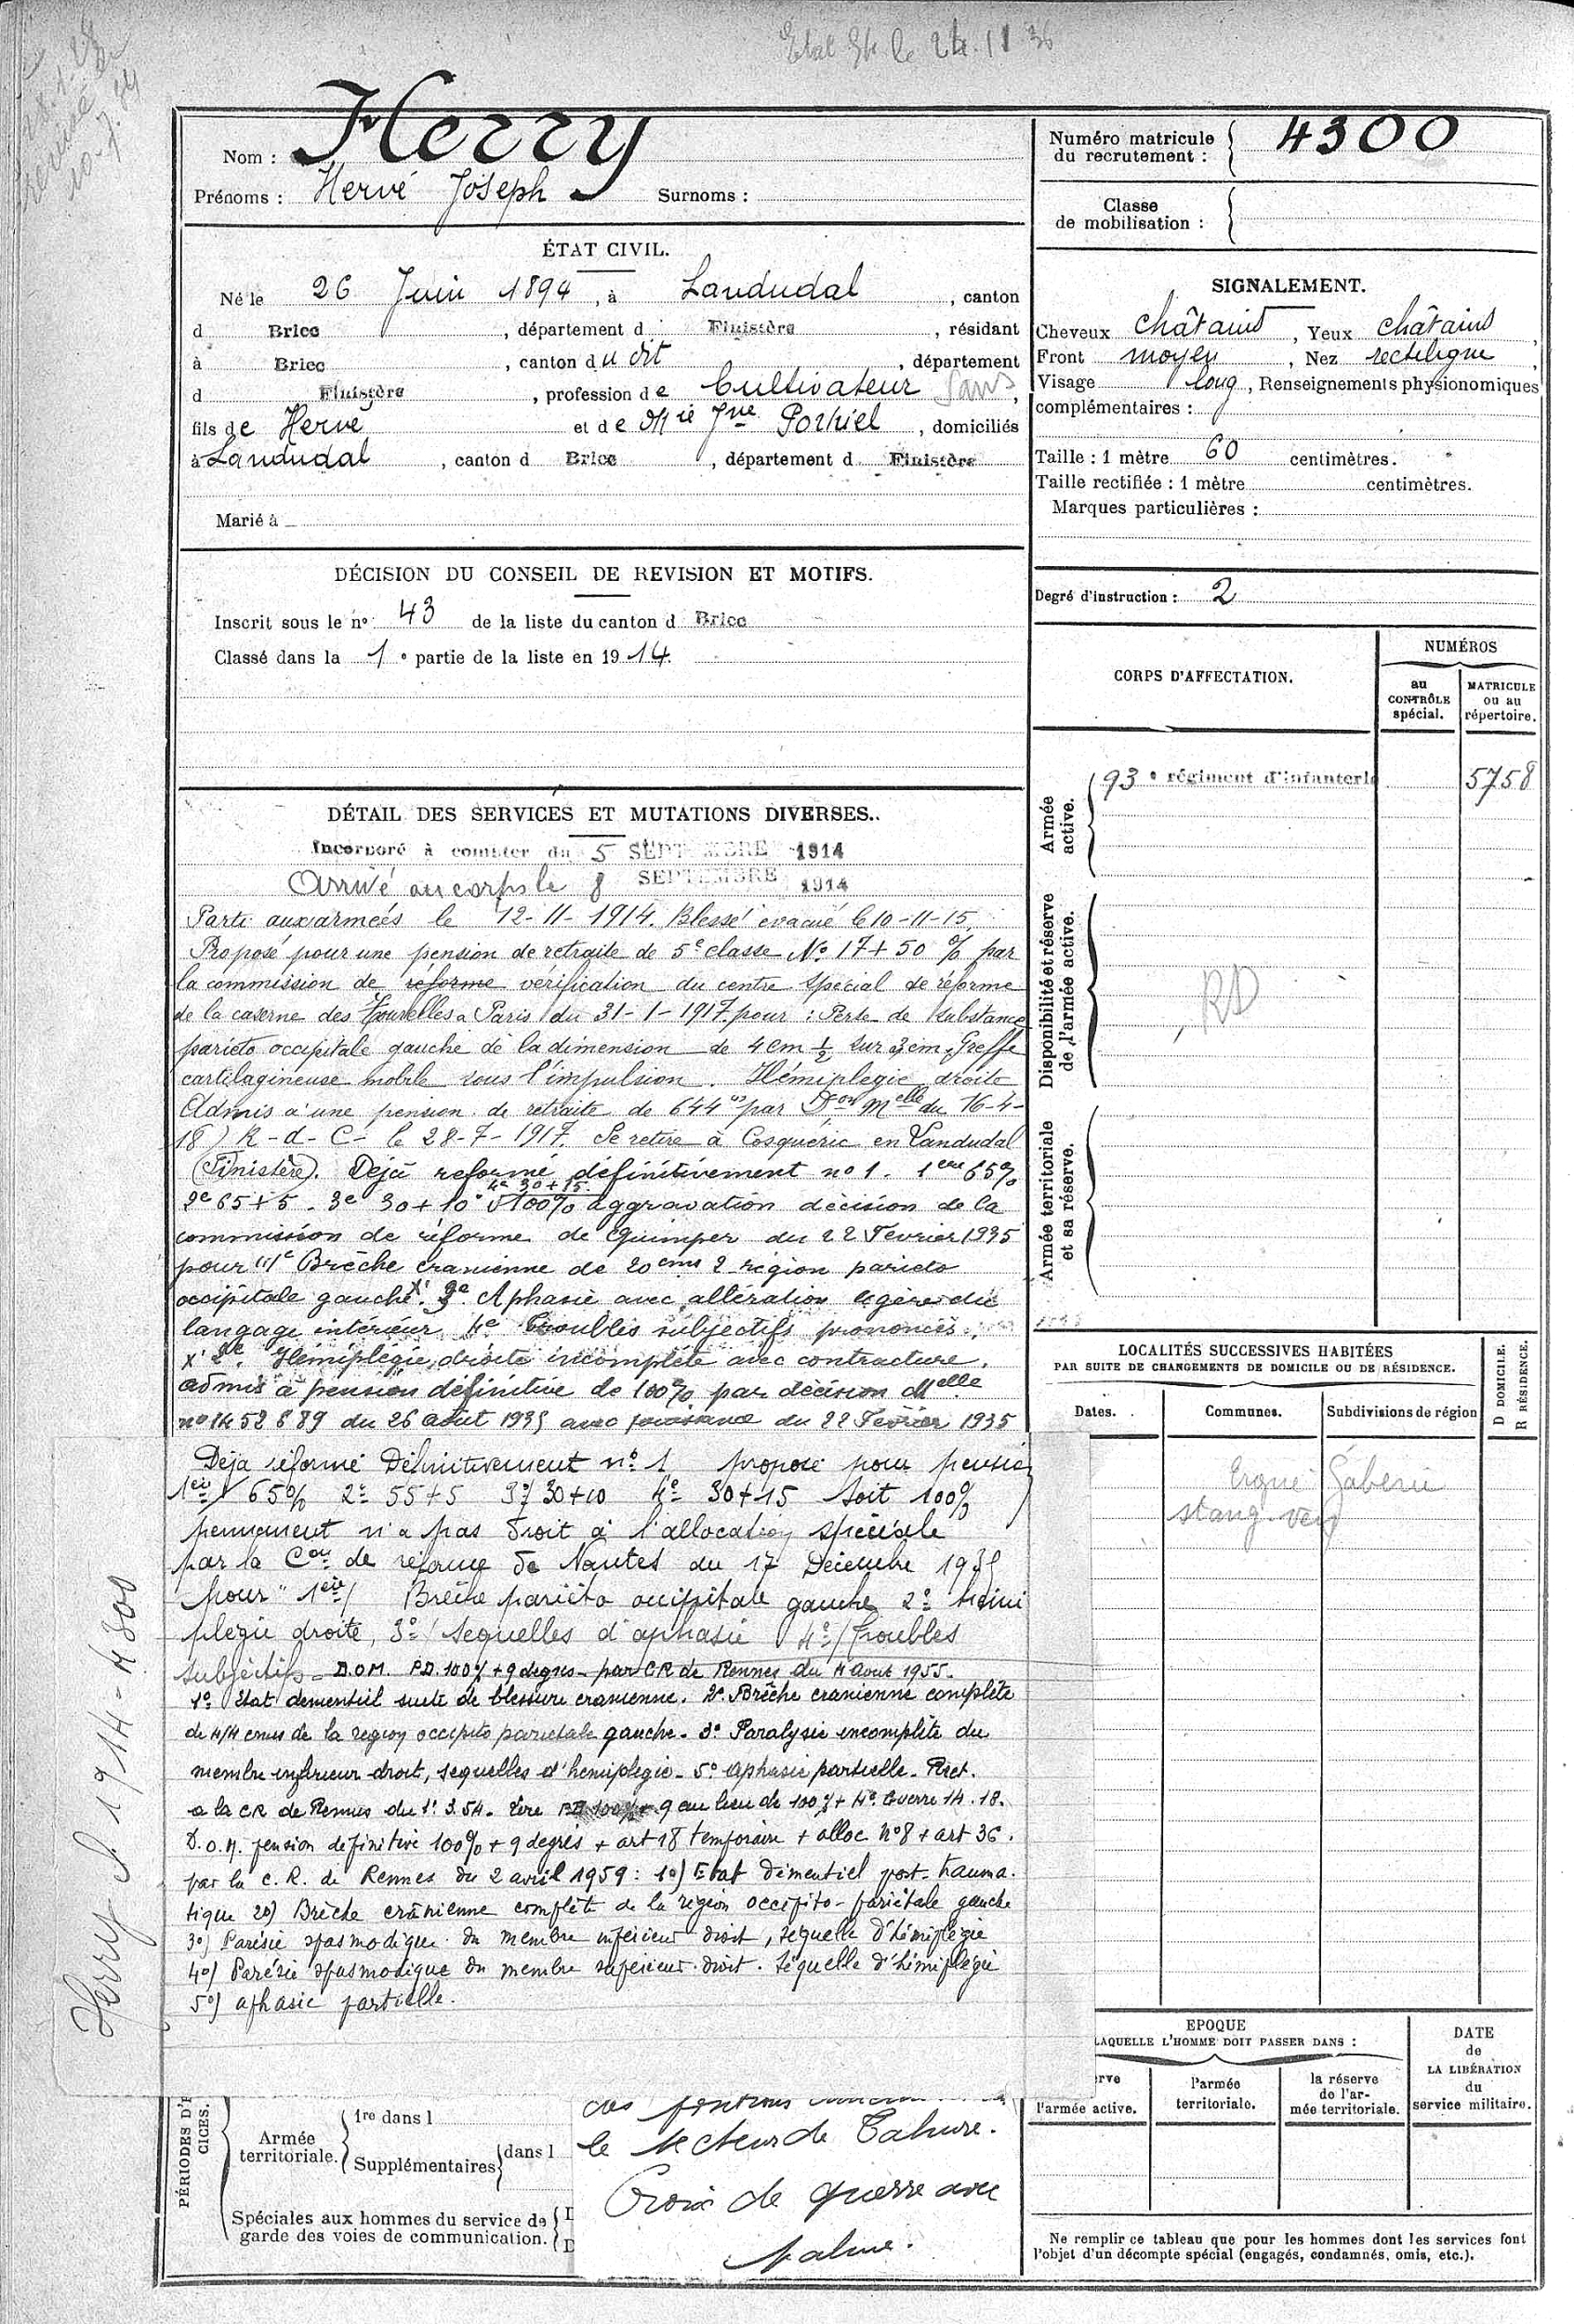 Etat le 24.11 36
Nom : Herry
Prénoms : Hervé Joseph Surnoms :
Numéro matricule
du recrutement : 4300
Classe
de mobilisation :
ÉTAT CIVIL.
Né le 26 Juin 1894, à Landudal, canton
d Briec, département d Finistère, résidant
à Briec, canton du dit, département
d Finistère, profession de Cultivateur sans,
fils de Hervé et de Mie Jne Porhiel, domiciliés
à Landudal, canton d Briec, département d Finistère
Marié à
SIGNALEMENT.
Cheveux châtains, Yeux châtains,
Front moyen, Nez rectiligne,
Visage long, Renseignements physionomiques
complémentaires :
Taille : 1 mètre 60 centimètres.
Taille rectifiée : 1 mètre centimètres.
Marques particulières :
DÉCISION DU CONSEIL DE REVISION ET MOTIFS.
Inscrit sous le n° 43 de la liste du canton d Briec
Classé dans la 1e partie de la liste en 1914.
Degré d'instruction : 2
CORPS D'AFFECTATION.
NUMÉROS
au
CONTRÔLE
spécial.
MATRICULE
ou au
répertoire.
Armée
active.
93e régiment d'infanterie 5758
Disponibilité et réserve
de l'armée active.
RD
Armée territoriale
et sa réserve.
DÉTAIL DES SERVICES ET MUTATIONS DIVERSES..
Incorporé à compter du 5 SEPTEMBRE 1914
Arrivé au corps le 8 SEPTEMBRE 1914
Parti aux armées le 12-11-1914. Blessé évacué le 10-11-15.
Proposé pour une pension de retraite de 5e classe No 17 + 50 % par
la commission de réforme vérification du centre spécial de réforme
de la caserne des Tourelles a Paris du 31-1-1917 pour : Perte de substance
pariéto occipitale gauche de la dimension de 4 cm ½ sur 3 cm. Greffe
cartilagineuse mobile sous l'impulsion. Hémiplegie droite
Admis à une pension de retraite de 644 par Don Melle du 16-4-
18) R-d-C- le 28-7-1917. Se retire à Cosquéric en Landudal
(Finistère). Déjà reformé définitivement no 1. 1ere 65%
4e 30+15.
2e 65+5 - 3e 30+10 100% aggravation décision de la
commission de réforme de Quimper du 22 Fevrier 1935
pour "1e Brèche cranienne de 20 cms 2 région parieto
occipitale gauche X. 3e Aphasie avec altération légère du
langage intérieur 4e Troubles subjectifs prononcés.
X 2e. Hémiplégie droite incomplète avec contracture.
admis à pension définitive de 100% par décision Melle
no 1452889 du 26 août 1935 avec jouissance du 22 Fevrier 1935
Déja réformé Définitivement no 1 proposé pour pension
1ere 65% 2e 55+5 3e 30+10 4e 30+15 soit 100%
permanent n'a pas droit à l'allocation spéciale
par la Con de réforme de Nantes du 17 Décembre 1935
pour "1ere/ Brèche pariéto occipitale gauche 2e hémi
plégie droite, 3e/ sequelles d'aphasie 4e/ Troubles
subjectifs - D.O.M. P.D. 100% + 9 degrés - par CR de Rennes du 4 Aout 1955.
1° Etat dementiel suite de blessure cranienne. 2° Brêche cranienne complète
de 4/4 cms de la region occipito parietale gauche. 3° Paralysie incomplète du
membre inferieur droit, sequelles d'hemiplegie - 5° aphasie partielle - Rect.
a la CR de Rennes du 1er 3.54. lire 100% + 9 au lieu de 100% + 4°. Guerre 14.18.
D.O.M. pension definitive 100% + 9 degrés + art 18 temporaire + alloc N°8 + art 36.
par la C.R. de Rennes du 2 avril 1959 : 1°) Etat Démentiel post-trauma.
tique 2°) Brèche crânienne complète de la région occipito-pariétale gauche
3°) Parésie spasmodique du membre inférieur droit, séquelle d'hémiplégie
4°) Parésie spasmodique du membre supérieur droit. Séquelle d'hémiplégie
5°) aphasie partielle.
Herry 1914-4300
LOCALITÉS SUCCESSIVES HABITÉES
PAR SUITE DE CHANGEMENTS DE DOMICILE OU DE RÉSIDENCE.
D DOMICILE.
R RÉSIDENCE.
Dates. Communes. Subdivisions de région
Ergué Gabéric
stang-ven
EPOQUE
LAQUELLE L'HOMME DOIT PASSER DANS :
l'armée active.
l'armée
territoriale.
la réserve
de l'ar-
mée territoriale.
DATE
de
LA LIBÉRATION
du
service militaire.
PÉRIODES D'E
CICES.
Armée
territoriale.
1re dans l
Supplémentaires dans l
Spéciales aux hommes du service de
garde des voies de communication.
le secteur de Tahure.
Croix de guerre avec
palme.
Ne remplir ce tableau que pour les hommes dont les services font
l'objet d'un décompte spécial (engagés, condamnés, omis, etc.).